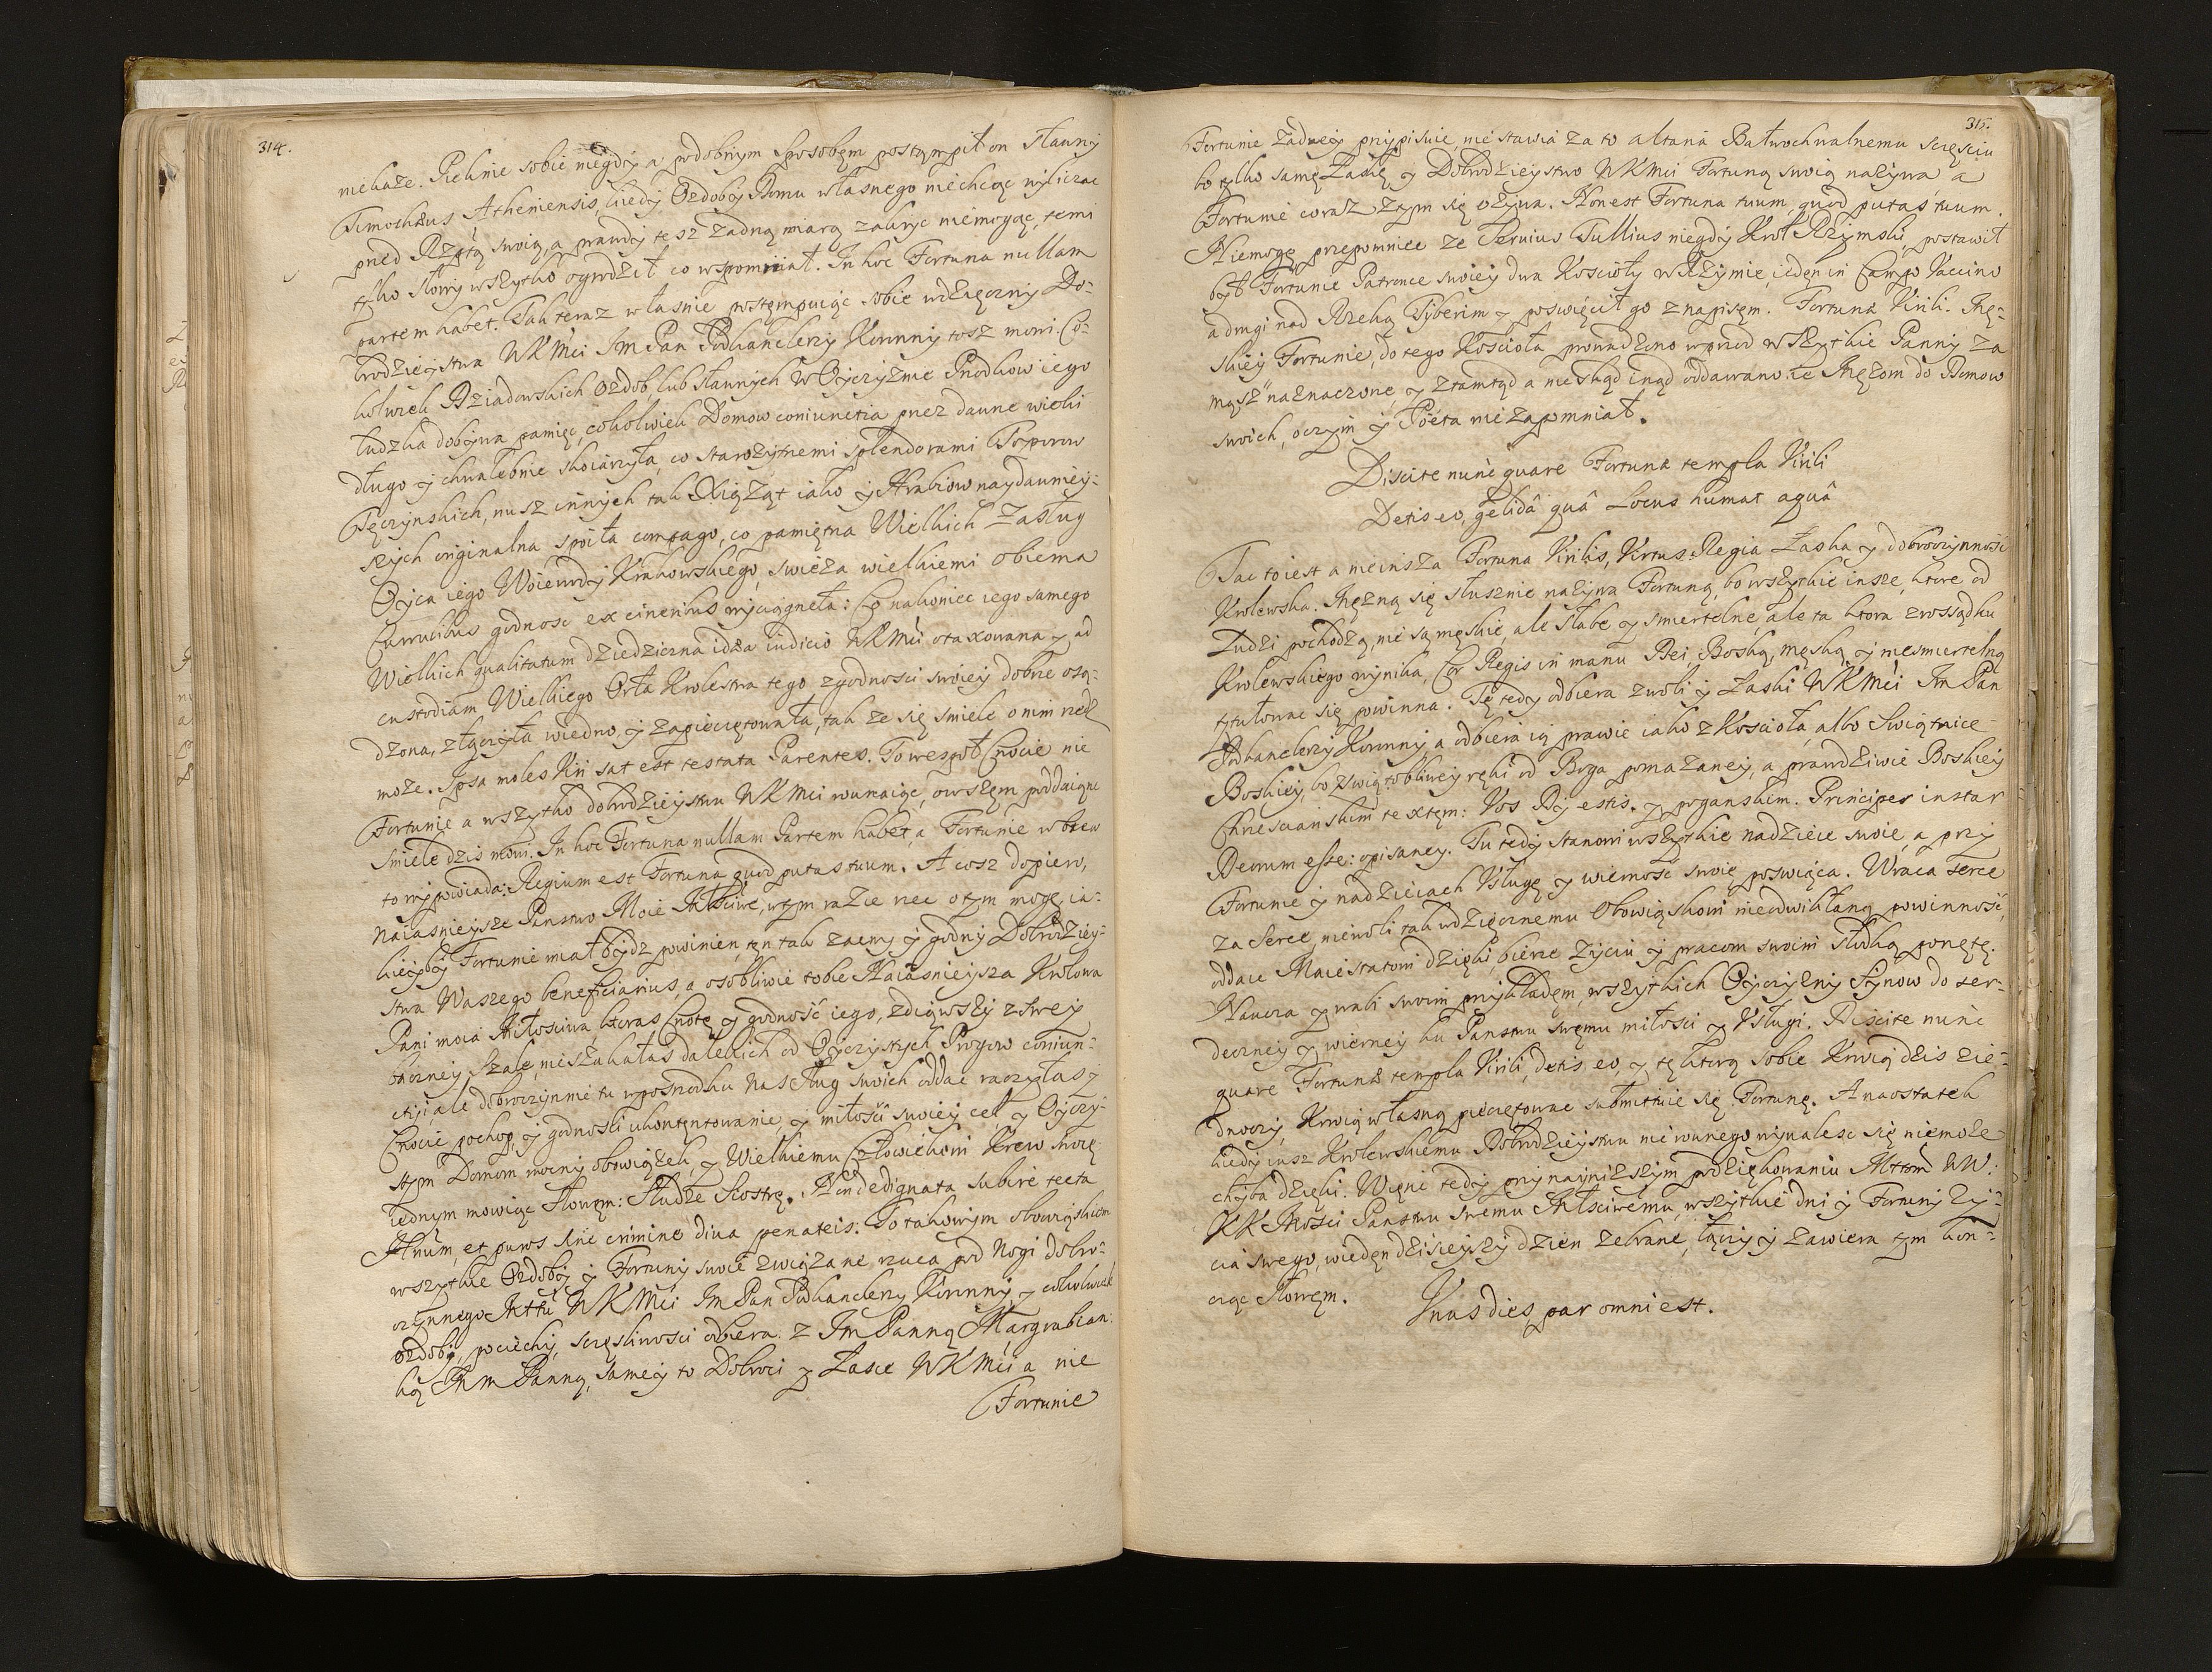 314.
niekaże. Pieknie sobie niegdy a podobnym sposobęm postąmpił on sławny
Timotheus Atheniensis, kiedy Ozdoby Domu własnego niechcąc wyliczac
pred Rzptą swoią, a prawdy tesz żadną miarą zakryc niemogąc, temi
tylko słowy wszytko ogrodził co wspominał. In hoc Fortuna nullam
partem habet. Tak teraz własnie postęmpuiąc sobie wdzięczny Do-
brodzieystwa WKMci JmPan Podkanclerzy Koronny tosz mowi. Co-
kolwiek Dziadowskich ozdob, lub sławnych w Oyczyznie Przodkow iego
ludzka dobywa pamięc, cokolwiek Domow coniunctia przez dawne wieki
długo y chwalebnie skoiarzyła, co starożytnemi splendorami Toporow
Tęczynskich, nusz innych tak Xiążąt iako y Hrabiow naydawniey-
szych originalna spoiła compago, co pamiętna Wielkich Zasług
Oyca iego Woiewody Krakowskiego, swieża wielkiemi obiema
Curulibus godnosc ex cineribus wyciągneła: Co nakoniec iego samego
Wielkich qualitatum dziedziczna idea iudicio WKMci otaxowana y ad
custodiam Wielkiego Orła Krolestwa tego z godnosci swoiey dobrze osą-
dzona, złączyła wiedno, y zapieczętowała, tak ze się smiele o nim rzec
może. Ipsa moles Viri sat est testata Parentes. To wespoł Cnocie nie
Fortunie a wszytko dobrodzieystwu WKMci rownaiąc, owszęm poddaiąc
smiele dzis mowi. In hoc Fortuna nullam Partem habet, a Fortunie wbrew
to wypowiada: Regium est Fortuna quod putas tuum. A cosz dopiero,
Naiasnieysze Panstwo Moie Miłosciwe, wtym razie rzec o tym mogę, ia-
kieyby Fortunie miał bydz powinien, tęn tak zacny y godny Dobrodziey-
stwa Waszego beneficiarius, a osobliwie tobie Naiasnieysza Krolowa
Pani moia Miłosciwa, ktoras Cnotę y godność iego, zdiąwszy z swey
dworney Szale, nieszukałas dalekich od Oyczystych Progow coniun-
ctij, ale dobroczynnie tu wposrodku nas sług swoich oddac raczyłas y
Cnocie pochop, y godnosci ukontęntowanie, y miłości swoiey cel, y Oyczy-
stym Domom mocny obowiązek, y Wielkiemu Człowiekowi Krew swoię
iednym mowiąc Słowęm: Słudze Siostrę. Non dedignata subire tecta
Nurum, et puros sine crimine diva penateis. To takowym obowiąskiem
wszytkie Ozdoby y Fortuny swoie związane rzuca pod Nogi dobro-
czynnego Mttu WKMci JmPan Podkanclerzy Koronny, y cokolwiek
ozdoby, pociechy, sczęsliwosci odbiera. z JmPanną Margrabian-
ką JmPanną, samey to Dobroci y Łasce WKMci a nie
Fortunie
315.
Fortunie żadney przypisuie, nie stawia za to ałtarza Bałwochwalnemu sczęsciu
bo tylko samę Łaskę y Dobrodzieystwo WKMci Fortuną swoią nazywa a
Fortunie coraz zaym się ozywa. Non est Fortuna tuum, quod putas, tuum.
Niemogę przepomniec ze Servius Tullius niegdy Krol Rzymski, postawił
był Fortunie Patronce swoiey dwa Koscioły w Rzymie, iedęn in Campo Vaccino
a drugi nad Rzeką Tyberim y poswięcił go z napisęm. Fortunæ Virili. Mę-
skiey Fortunie, do tego Koscioła prowadzono wprzod wszytkie Panny za
mąsz naznaczone, y ztamtąd a nieskąd inąd oddawano te Mężom do Domow
swoich, o czym y Poëta niezapomniał.
Discite nunc quare Fortunæ templa Virili
Detis eo, gelidâ quâ Locus humat aquâ
Tac to iest a nieinsza Fortuna Virilis, Virtus: Regia Łaska y dobroczynność
Krolewska. Mężną się słusznie nazywa Fortuną, bo wszytkie insze, ktore od
Ludzi pochodzą, nie są męskie, ale słabe y smiertelne, ale ta ktora z rossądku
Krolewskiego wynika, Cor Regis in manu Dei, Boską, męską, y niesmiertelną
tytułowac się powinna. Tę tedy odbiera z woli y Łaski WKMci JmPan
Podkanclerzy Koronny, a odbiera ią prawie iako z Koscioła, albo Swiątnice
Boskiey, bo z Swiątobliwey ręki od Boga pomazaney, a prawdziwie Boskiey
Chrzescianskim textęm: Vos Dij estis. y poganskim. Principes instar
Deorum esse: opisaney. Tu tedy stanowi wszytkie nadzieie swoie, a przy
Fortunie y nadzieiach Usługę y wierność swoię poswiąca. Wraca serce
za Serce, niewoli tak wdzięcznemu Obowiąskowi nieodwikłaną powinność,
oddaie Maiestatowi dzięki, bierze życiu y pracom swoim słodką ponętę.
Naucza y wabi swoim przykładęm, wszytkich Oyczyzny Synow do ser-
deczney y wierney ku Panstwu swęmu miłosci y Usługi. Discite nunc
quare Fortunæ templa Virili, detis eo, y tę ktorą sobie Krwią dzis zie-
dnoczy, Krwią własną pieczętowac submittuie się Fortunę. A naostatek
kiedy iusz Krolewskiemu Dobrodzieystwu nic rownego wynalesc się niemoże
chyba dzięki. Więc tedy przy nayniższym podziękowaniu Mttom WW.
KK Mości Panstwu swemu Miłosciwemu, wszytkie dni y Fortuny ży-
cia swego, wiedęn dzisieyszy dzien zebrane, łączy y zawiera tym kon-
cząc Słowęm.
Unus dies par omni est.